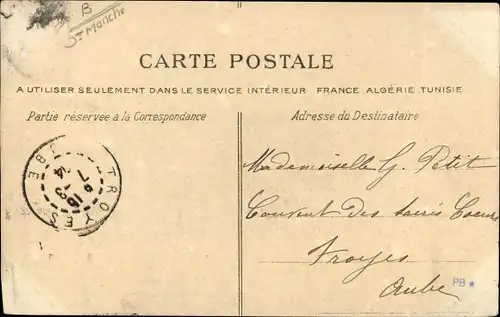 B
St Manche
CARTE POSTALE
A UTILISER SEULEMENT DANS LE SERVICE INTÉRIEUR FRANCE, ALGÉRIE, TUNISIE
Partie réservée à la Correspondance
Adresse du Destinataire
TROYES
AUBE
16 -3
14
Mademoiselle G. Petit
Couvent des sacrés Coeurs
Troyes
Aube
PB★